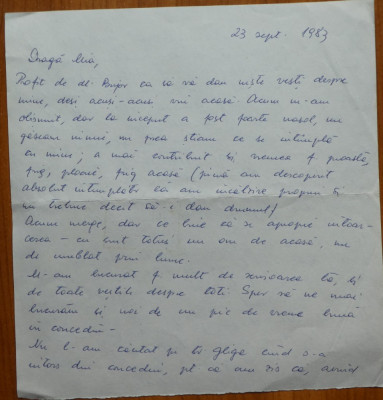 23 sept. 1983
Dragă Mia,
Profit de dl. Bujor ca să vă dau niște vești despre
mine, deși acuși-acuși vin acasă. Acum m-am
obișnuit, dar la început a fost foarte nasol, nu
găseam nimic, nu prea știam ce se întîmplă
cu mine; a mai contribuit și vremea f. proastă,
frig, ploaie, frig acasă (pînă am descoperit
absolut întîmplător că am încălzire proprie și
nu trebuie decît să-i dau drumul)
Acum merge, dar ce bine că se apropie întoar-
cerea - eu sunt totuși un om de acasă, nu
de umblat prin lume.
M-am bucurat f. mult de scrisoarea ta, și
de toate veștile despre toți. Sper să ne mai
bucurăm și noi de un pic de vreme bună
în concediu -
Nu l-am căutat pe tv Gliga cînd s-a
întors din concediu, pt. că am zis că, avînd